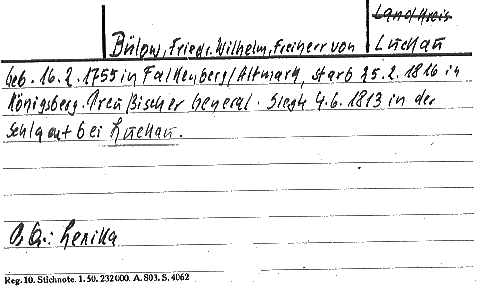 Landkreis
Bülow, Friedr. Wilhelm, Freiherr von Luckau
geb. 16.2.1755 in Falkenberg/Altmark, starb 25.2.1816 in
Königsberg. Preußischer General. Siegte 4.6.1813 in der
Schlacht bei Luckau.
P. Qu.: Lexika
Reg. 10. Stichnote. 1. 50. 232000. A. 803. S. 4062